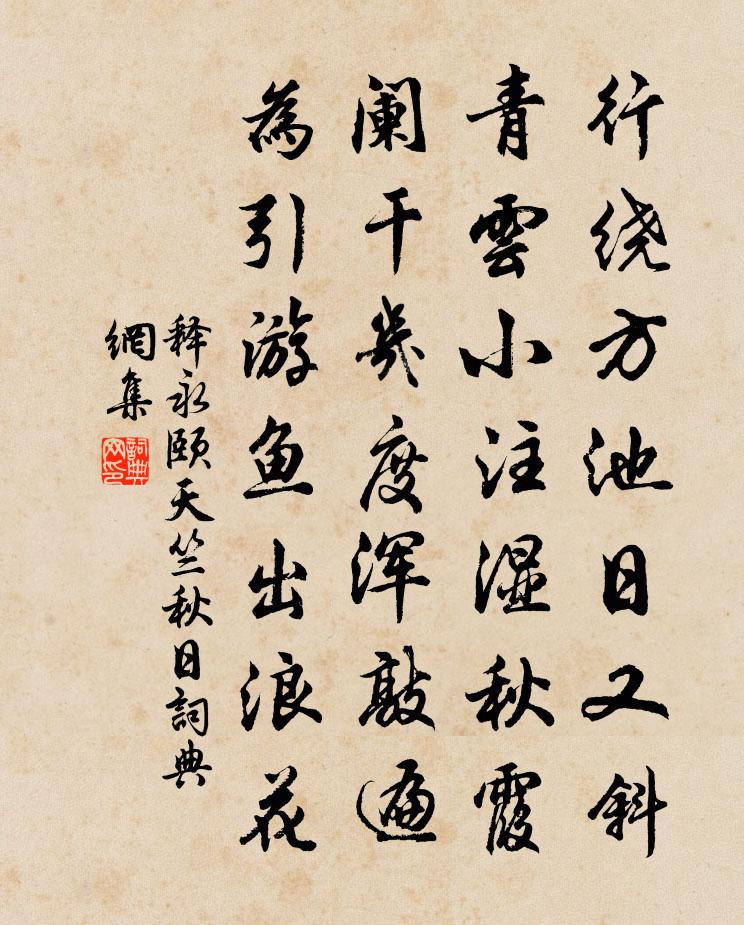 行绕方池日又斜
青雲小注湿秋霞
阑干幾度浑敲遍
為引游鱼出浪花
释永颐天竺秋日詞典
網集
詞典
网印